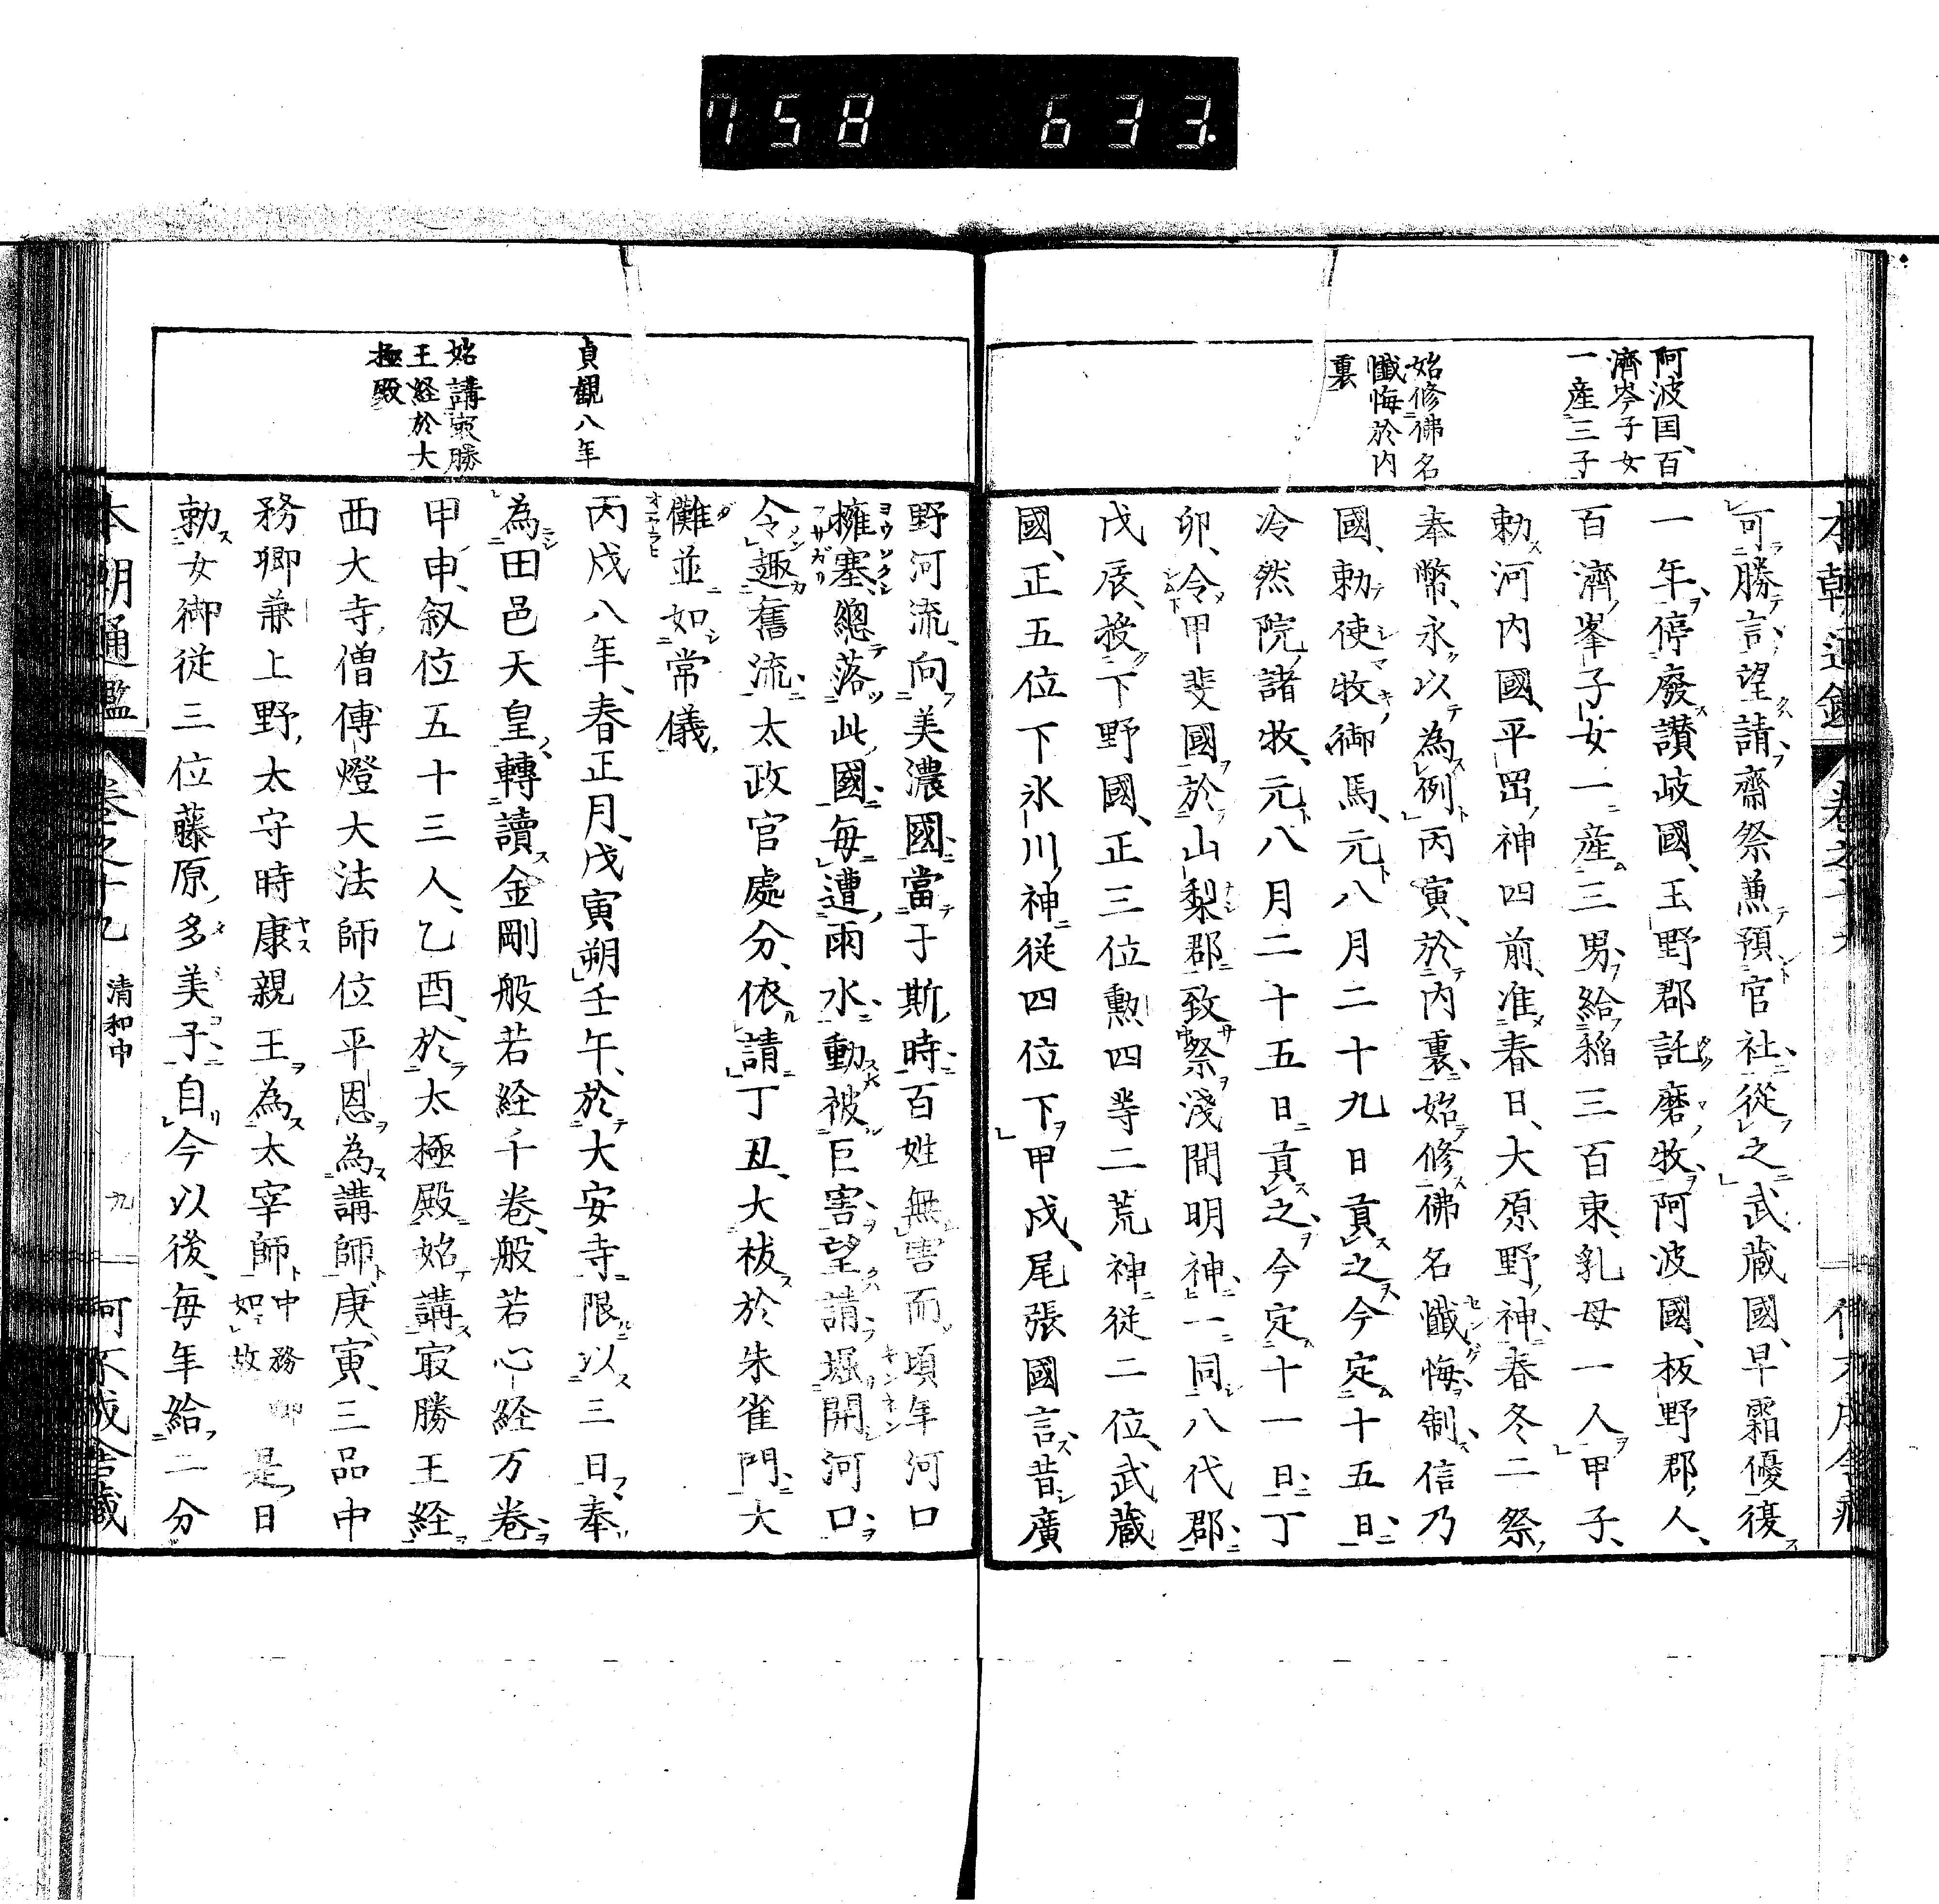 758 633.
阿波国、百
濟岑子女
一産三子
始修佛名
懺悔於内
裏
可勝言、望請、齋祭兼預官社、從之、武藏國、早霜優復
一年、停廢讃岐國、玉野郡託磨牧、阿波國、板野郡人、
百濟峯子女一産三男、給稲三百束、乳母一人、甲子、
勅河内國、平岡神四前、准春日、大原野神、春冬二祭、
奉幣、永以為例、丙寅、於内裏、始修佛名懺悔、制、信乃
國、勅使牧御馬、元八月二十九日貢之、今定十五日、
冷然院諸牧、元八月二十五日貢之、今定十一日、丁
卯、令甲斐國於山梨郡致祭淺間明神、一同八代郡、
戊辰、授下野國、正三位勲四等二荒神従二位、武藏
國、正五位下氷川神従四位下、甲戌、尾張國言、昔廣
貞觀八年
始講冣勝
王経於大
極殿
野河流、向美濃國、當于斯時、百姓無害、而頃年河口
擁塞、總落此國、毎遭雨水、動被巨害、望請、堀開河口、
令趣舊流、太政官處分、依請、丁丑、大祓於朱雀門、大
儺並如常儀、
丙戌八年、春正月、戊寅朔、壬午、於大安寺限以三日、奉
為田邑天皇、轉讀金剛般若経千卷、般若心経万卷、
甲申、叙位五十三人、乙酉、於太極殿、始講冣勝王経
西大寺僧傳燈大法師位平恩為講師、庚寅、三品中
務卿兼上野太守時康親王為太宰師 中務卿如故 是日
勅女御従三位藤原多美子、自今以後、毎年給二分
本朝通鑑 卷之十九 清和中 九